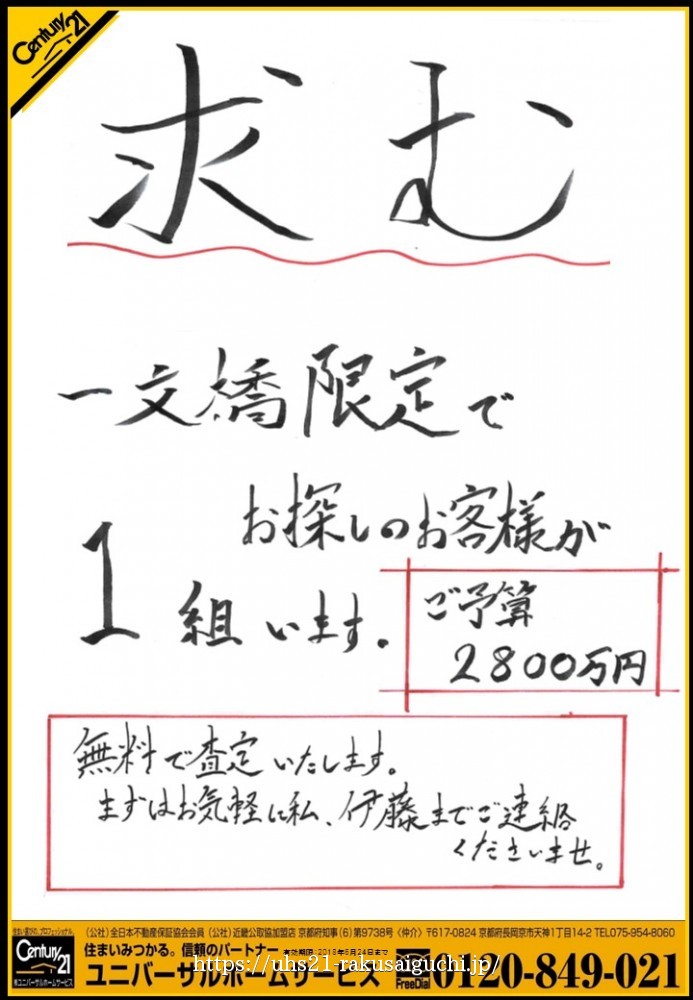 Century 21
求む
一文橋限定で
お探しのお客様が
1組います。
ご予算
2800万円
無料で査定いたします。
まずはお気軽に私、伊藤までご連絡
くださいませ。
(公社)全日本不動産保証協会会員 (公社)近畿公取協加盟店 京都府知事(6)第9738号 〈仲介〉 〒617-0824 京都府長岡京市天神1丁目14-2 TEL075-954-8060
Century 21
住まいみつかる。信頼のパートナー
有効期限:2018年6月24日まで
ユニバーサルホームサービス
FreeDial 0120-849-021
㈱ユニバーサルホームサービス
https://uhs21-rakusaiguchi.jp/